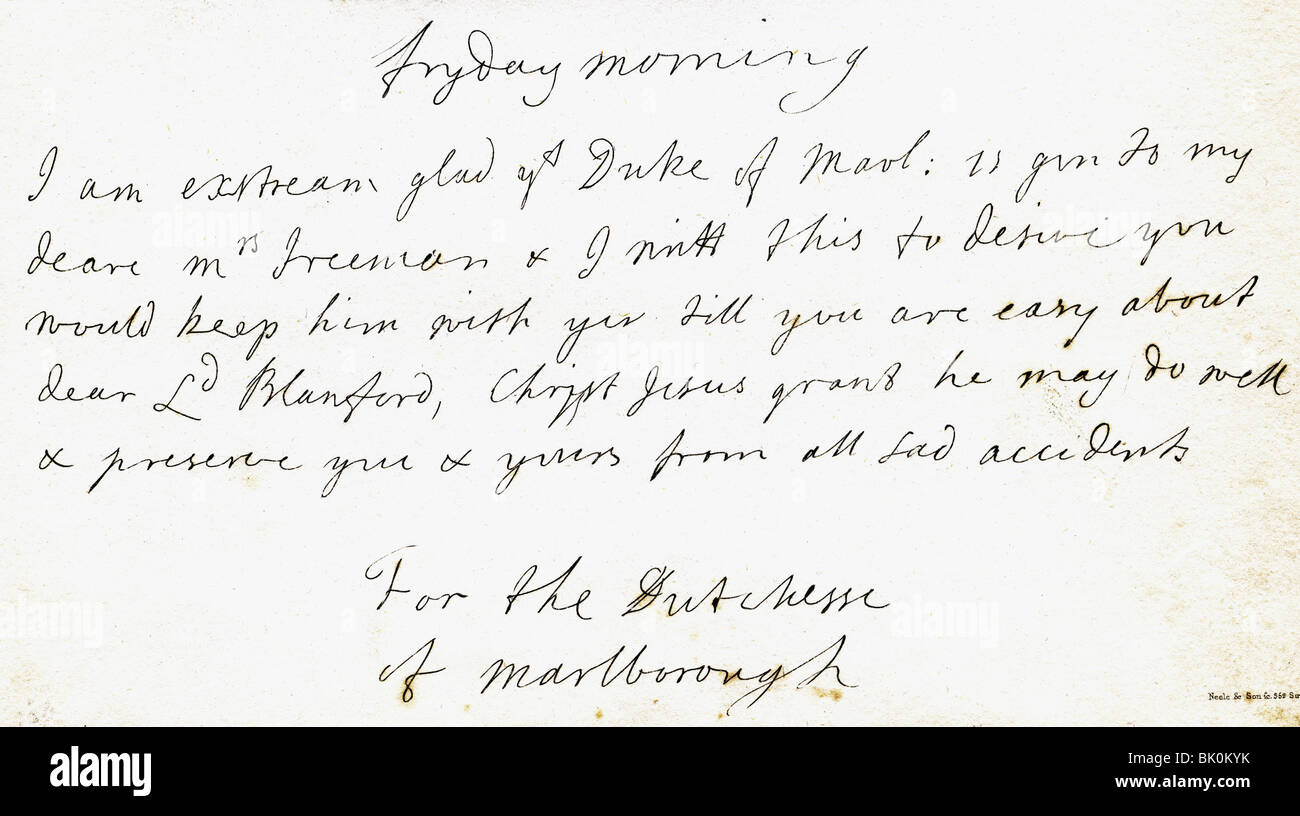 fryday morning
I am exstream glad yt Duke of Marl: is gon to my
deare mrs Freeman & I writt this to desire you
would keep him with you till you are easy about
dear Ld Blanford, Christ Jesus grant he may do well
& preserve you & yours from all sad accidents
For the Dutchesse
of Marlborough
Neele & Son sc. 352
alamy
Image ID: BK0KYK
www.alamy.com